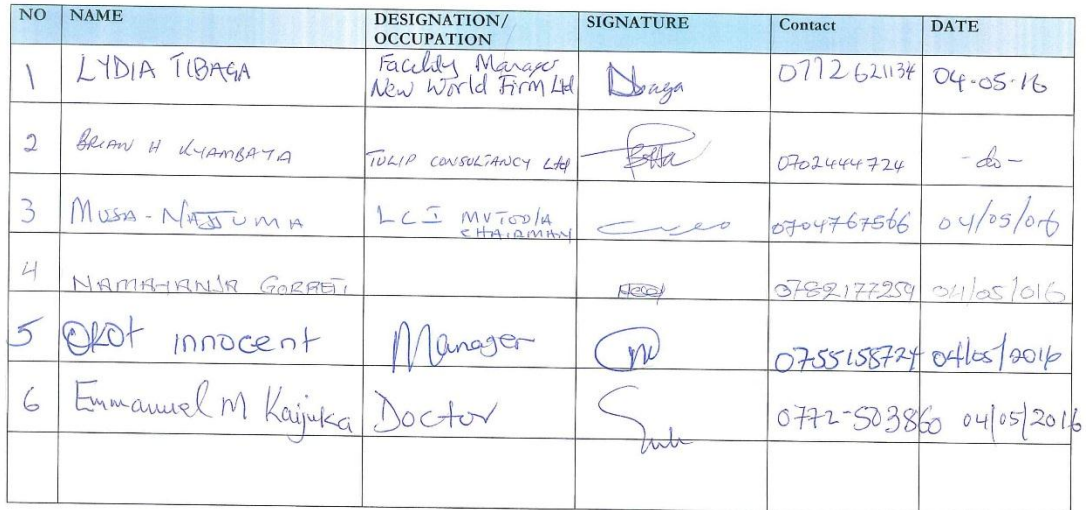 NO NAME DESIGNATION/ OCCUPATION SIGNATURE Contact DATE
1 LYDIA TIBAGA Facility Manager New World Firm Ltd 0772621134 04-05-16
2 BRIAN H KYAMBAYA TULIP CONSULTANCY Ltd 0702444724 -do-
3 MUSA - NAJJUMA LC I CHAIRMAN 0704767566 04/05/016
4 NAMAHANJA GORRETI 0782177259 04/05/016
5 OKOt innocent Manager 0755158724 04/05/2016
6 Emmanuel M Kaijuka Doctor 0772-503860 04/05/2016